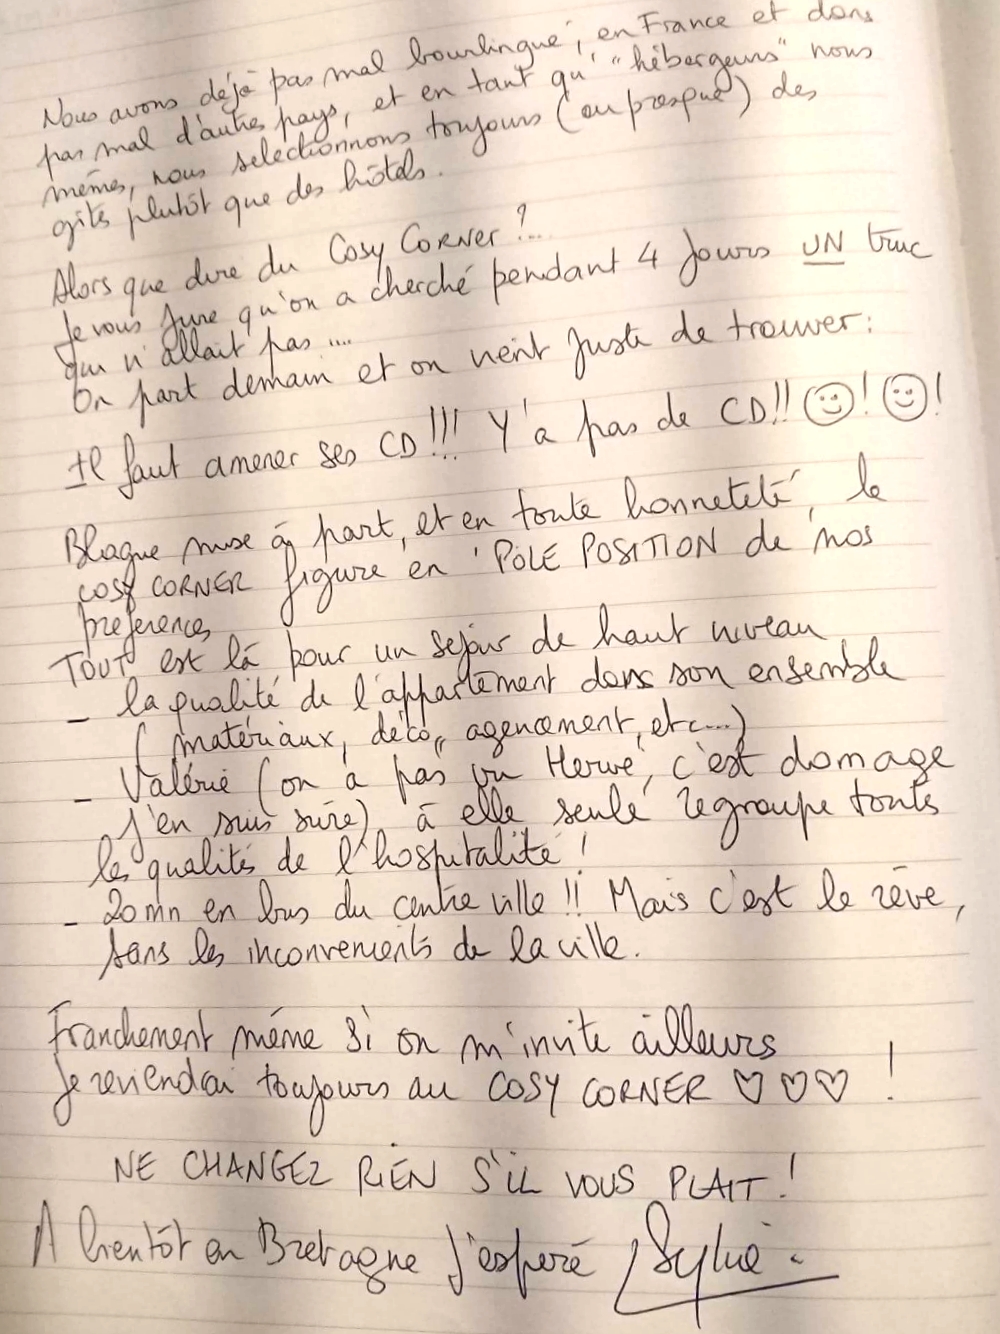 Nous avons déjà pas mal bourlingué, en France et dans
pas mal d'autres pays, et en tant qu' "hébergeurs" nous
mêmes, nous selectionnons toujours (ou presque) des
gîtes plutôt que des hôtels.
Alors que dire du COSY CORNER ?...
Je vous jure qu'on a cherché pendant 4 jours UN truc
qui n'allait pas ....
On part demain et on vient juste de trouver :
Il faut amener ses CD !!! Y'a pas de CD !! ☺ ! ☺ !
Blague mise à part, et en toute honneteté, le
COSY CORNER figure en 'POLE POSITION de nos
préférences
TOUT est là pour un séjour de haut niveau
- la qualité de l'appartement dans son ensemble
( matériaux, déco, agencement, etc...)
- Valérie (on a pas vu Hervé, c'est domage
j'en suis sûre) à elle seule regroupe touts
les qualités de l'hospitalité !
- 20 mn en bus du centre ville !! Mais c'est le rêve,
sans les inconvénients de la ville.
Franchement même si on m'invite ailleurs
je reviendrai toujours au COSY CORNER ♡ ♡ ♡ !
NE CHANGEZ RIEN S'IL VOUS PLAIT !
A bientôt en Bretagne j'espère Sylvie -